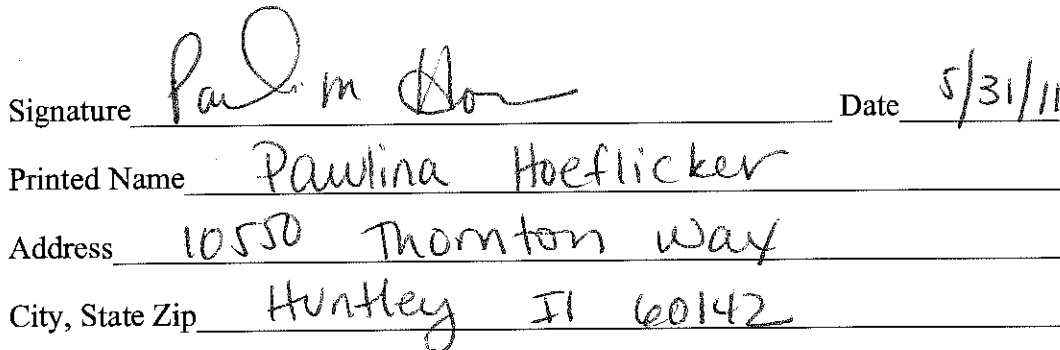 Signature Paulina Hoe Date 5/31/11
Printed Name Paulina Hoeflicker
Address 10550 Thornton Way
City, State Zip Huntley Il 60142